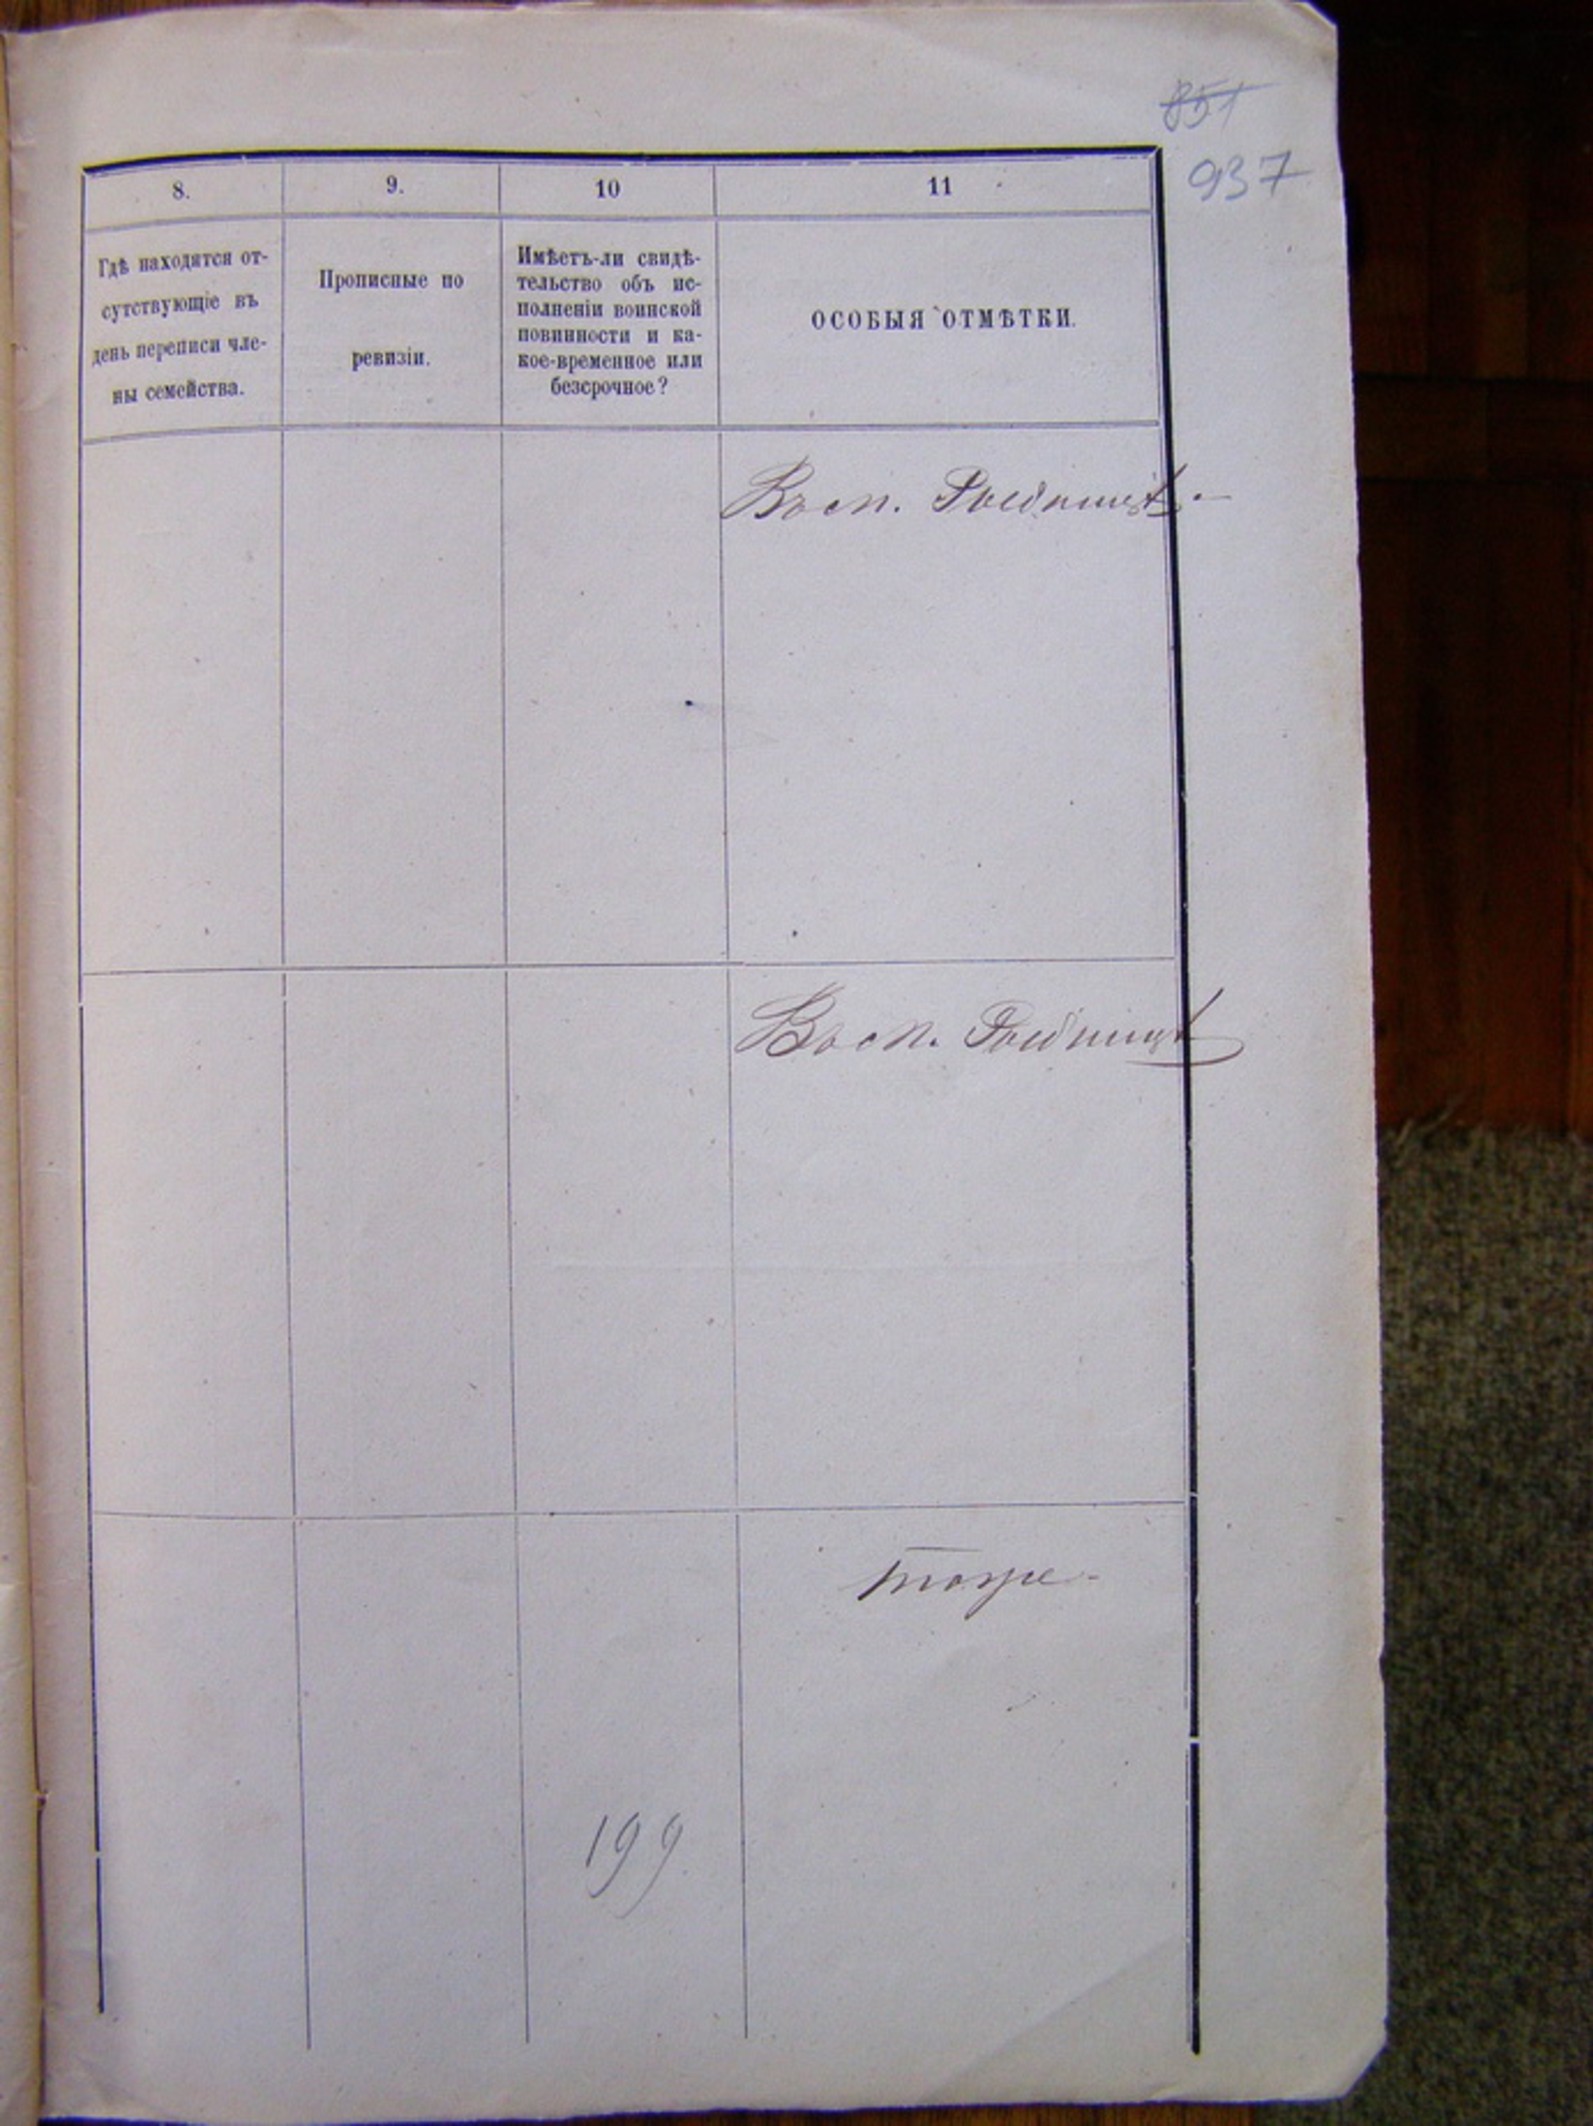 851
937
8.
9.
10
11
Гдѣ находятся от-
сутствующіе въ
день переписи чле-
ны семейства.
Прописные по
ревизіи.
Имѣетъ-ли свидѣ-
тельство объ ис-
полненіи воинской
повинности и ка-
кое-временное или
безсрочное?
ОСОБЫЯ ОТМѢТКИ.
Восп.
Восп.
тоже-
199.